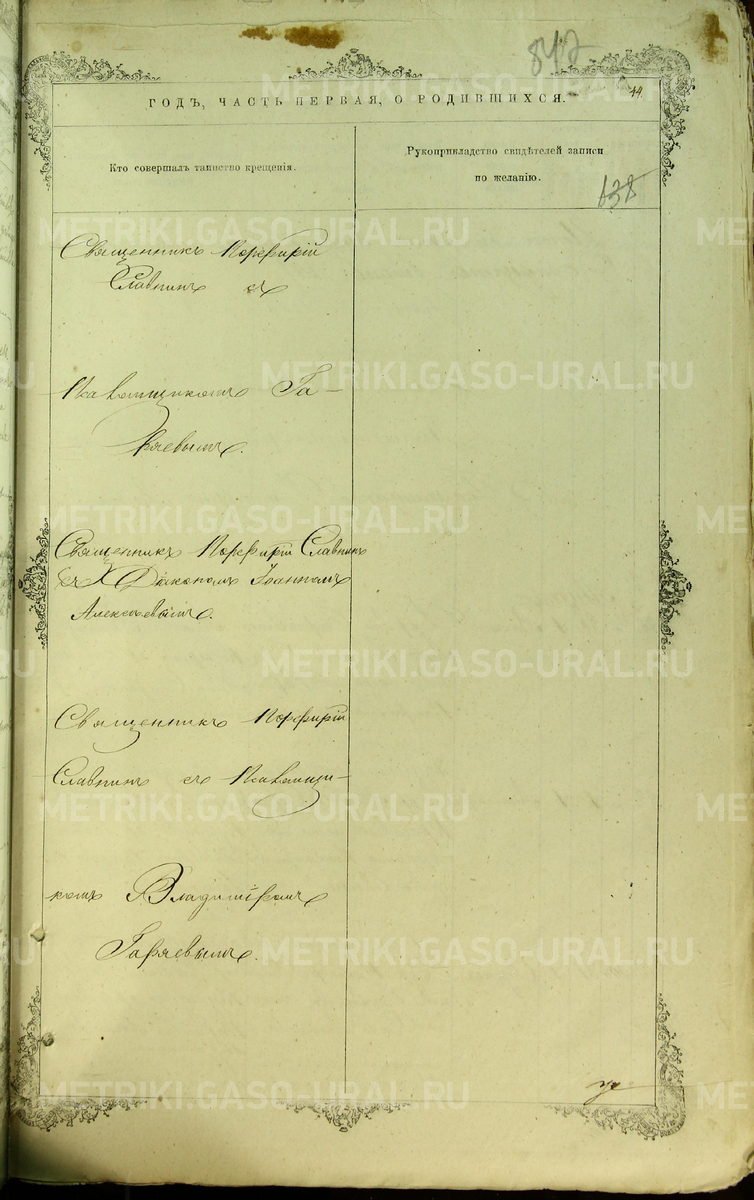 842
ГОДЪ, ЧАСТЬ ПЕРВАЯ, О РОДИВШИХСЯ.
44.
Кто совершалъ таинство крещенія.
Рукоприкладство свидѣтелей записи
по желанію.
638
Священникъ Порфирій
Славнинъ съ
Псаломщикомъ Га-
ряевымъ.
Священникъ Порфирій Славнинъ
съ Діакономъ Іоанномъ
Алексѣевымъ.
Священникъ Порфирій
Славнинъ съ Псаломщи-
комъ Владиміромъ
Гаряевымъ.
METRIKI.GASO-URAL.RU